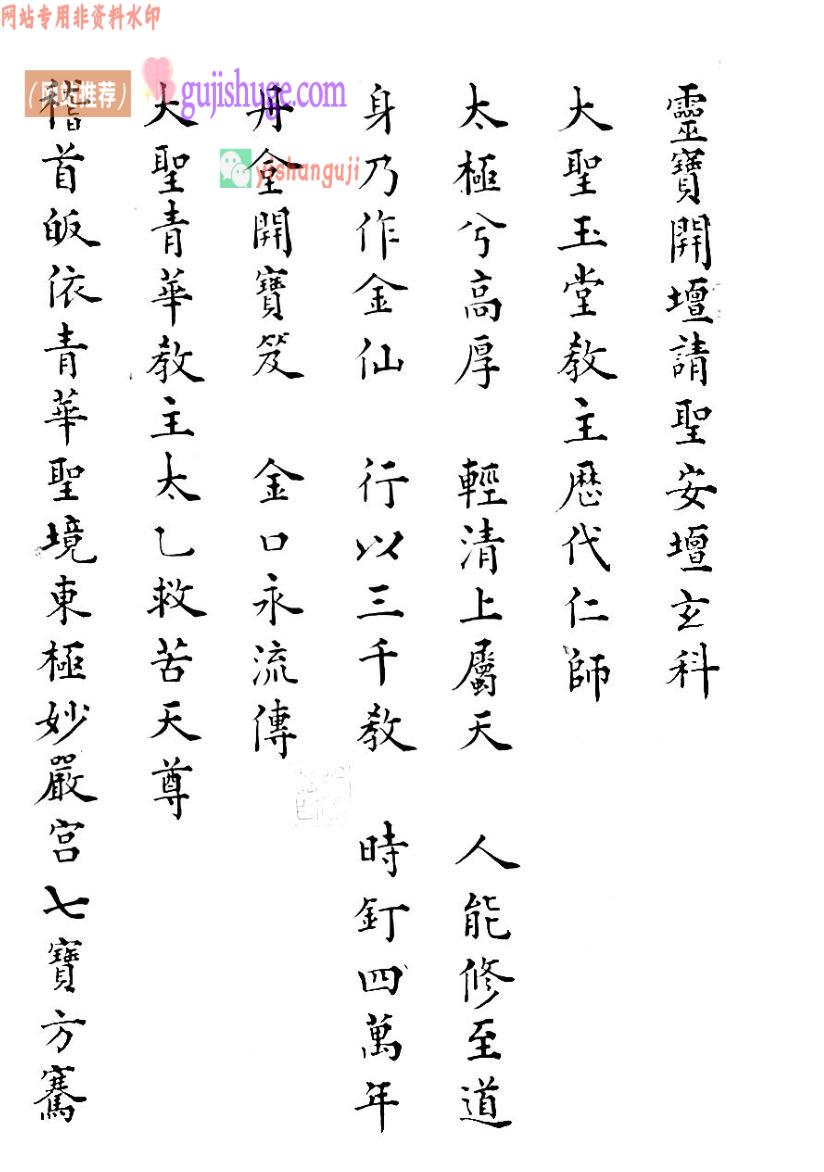 网站专用非资料水印
（网站推荐）
gujishuge.com
yishanguji
靈寶開壇請聖安壇玄科
大聖玉堂教主歷代仁師
太極兮高厚 輕清上屬天 人能修至道
身乃作金仙 行以三千教 時釘四萬年
丹全開寶笈 金口永流傳
大聖青華教主太乙救苦天尊
稽首皈依青華聖境東極妙嚴宮七寶方騫